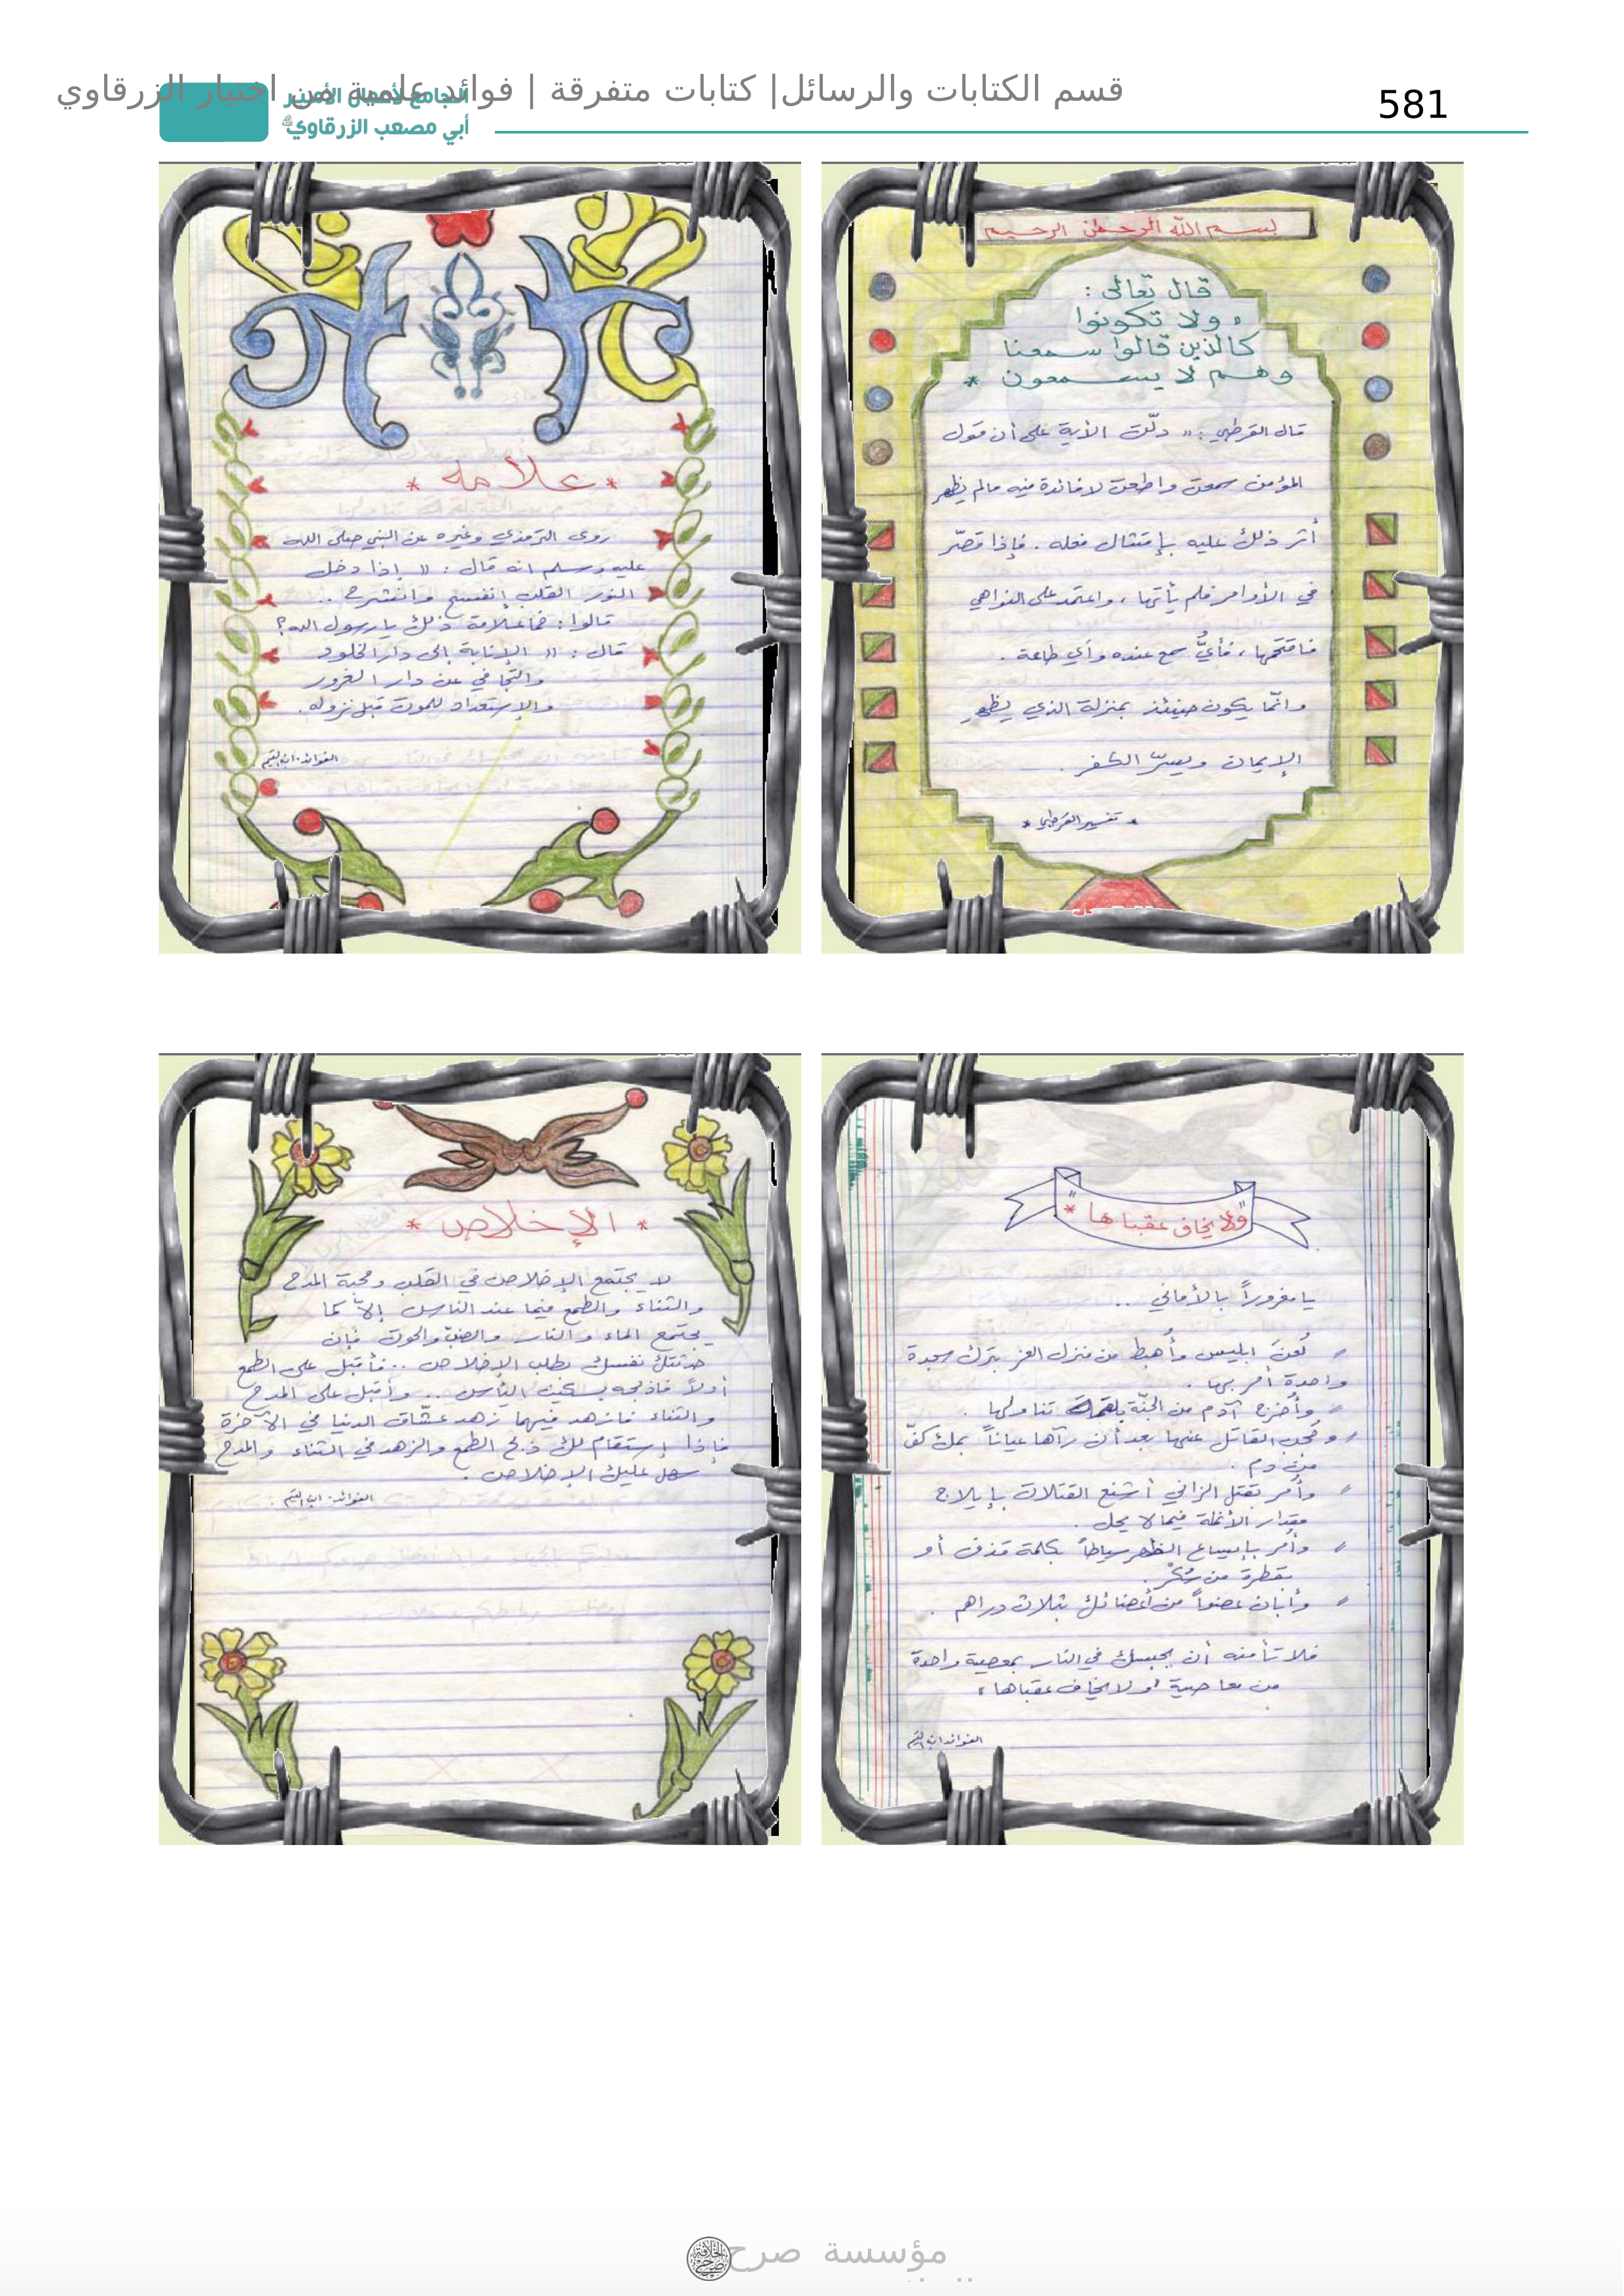 قسم الكتابات والرسائل| كتابات متفرقة | فوائد علمية من اختيار الزرقاوي
581
الجامع لأعمال الأمير
أبي مصعب الزرقاوي
بسم الله الرحمن الرحيم
قال تعالى :
ولا تكونوا
كالذين قالوا سمعنا
وهم لا يسمعون *
قال القرطبي : " دلّت الآية على أن قول
المؤمن سمعت واطعت لا فائدة فيه مالم يظهر
أثر ذلك عليه بإمتثال فعله . فإذا قصّر
في الأوامر فلم يأتها ، واعتمد على النواهي
فاقتحمها ، فأيُّ سمع عنده وأي طاعة .
وانّما يكون حينئذ بمنزلة الذي يظهر
الإيمان ويسرّ الكفر .
* تفسير القرطبي *
* علامه *
روى الترمذي وغيره عن النبي صلى الله
عليه وسلم انه قال : " إذا دخل
النور القلب إنفسح وانشرح ..
قالوا : فما علامة ذلك يا رسول الله ؟
قال : " الإنابة إلى دار الخلود
والتجافي عن دار الغرور
والإستعداد للموت قبل نزوله .
الفوائد . ابن القيم
"ولا يخاف عقباها" *
يا مغروراً بالأماني ..
لُعنَ ابليس وأُهبط من منزل العز بترك سجدة
واحدة أُمر بها .
وأُخرج آدم من الجنّة بلقمة تناولها .
وحُجب القاتل عنها بعد أن رآها عياناً بملء كفّ
من دم .
وأُمر بقتل الزاني أشنع القتلات بإيلاج
مقدار الأنملة فيما لا يحل .
وأُمر بإيساع الظهر سياطاً بكلمة قذف أو
بقطرة من سُكْر .
وأبان عضواً من أعضائك بثلاث دراهم .
فلا تأمنه أن يحبسك في النار بمعصية واحدة
من معاصية ولا يخاف عقباها
الفوائد ابن القيم
* الإخلاص *
لا يجتمع الإخلاص في القلب ومحبة المدح
والثناء والطمع فيما عند الناس إلاّ كما
يجتمع الماء والنار والضبّ والحوت فإن
حدثتك نفسك بطلب الإخلاص .. فأقبل على الطمع
أولاً فاذبحه بسكين اليأس .. وأقبل على المدح
والثناء فازهد فيهما زهد عشّاق الدنيا في الآخرة
فإذا إستقام لك ذبح الطمع والزهد في الثناء والمدح
سهل عليك الإخلاص .
الفوائد . ابن القيم .
مؤسسة صرح